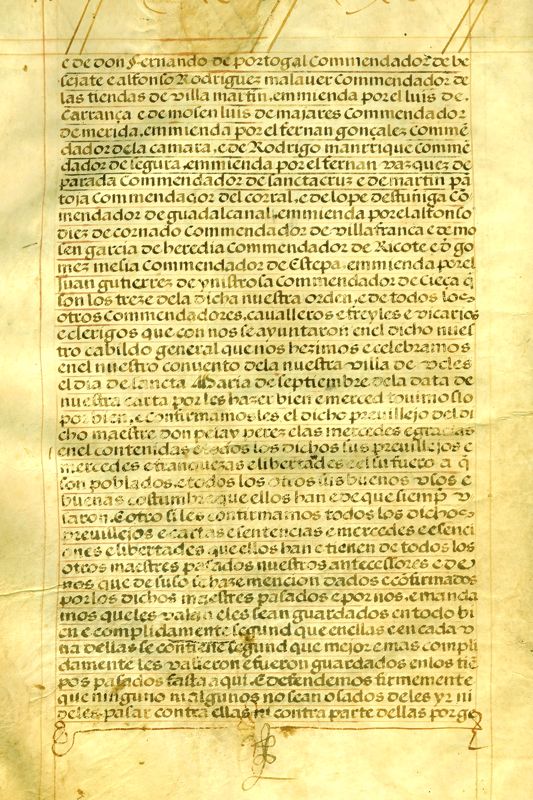 e de don Fernando de portogal Commendador de be
sejate e alfonso Rodriguez malauer Commendador de
las tiendas de villa martin, emmienda por el luis de.
Carrança e de mosen luis de majares Commendador
de merida, emmienda por el fernan gonçalez commẽ
dador de la camara, e de Rodrigo manrrique commẽ
dador de segura, emmienda por el fernan vazquez de
parada Commendador de sanctacruz e de martin pã
toja commendador del corral, e de lope destuñiga Cõ
mendador de guadalcanal, emmienda por el alfonso
diez de cornado Commendador de villafranca e de mo
sen garcia de heredia commendador de Ricote e õ go
mez mesia Commendador de Estepa, emmienda por el
Juan gutierrez de ynistrosa commendador de Cieça q̃
son los treze de la dicha nuestra orden, e de todos los
otros commendadores, cavalleros e freyles e vicarios
e clerigos que con nos se ayuntaron en el dicho nues
tro cabildo general que nos hezimos e celebramos
en el nuestro convento de la nuestra villa de veles
el dia de sancta Maria de septiembre de la data de
nuestra carta por les hazer bien e merced tovimoslo
por bien, e confirmamosles el dicho previllejo del di
cho maestre don pelay perez e las mercedes e gracias
en el contenidas e todos los dichos sus previllejos e
mercedes e franquezas e libertades e el su fuero a q̃
son poblados, e todos los otros sus buenos vsos e
buenas costumbres que ellos han e de que siemp̃ v
saron. E otrosi les confirmamos todos los dichos
previllejos e cartas e sentencias e mercedes e esenci
ones e libertades que ellos han e tienen de todos los
otros maestres pasados nuestros antecessores e de
nos que de suso se haze mencion dados e cõfirmados
por los dichos maestres pasados e por nos, e manda
mos que les valan e les sean guardados en todo bi
en e complidamente segund que en ellas e en cada v
na dellas se contiene segund que mejor e mas compli
damente les valieron e fueron guardados en los tiẽ
pos pasados fasta aqui. E defendemos firmemente
que ninguno ni algunos no sean osados de les yr ni
de les pasar contra ellas ni contra parte dellas por ge